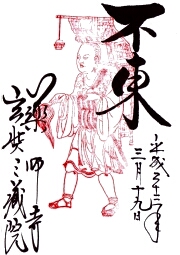 不東
平成二十三年
三月十九日
薬師寺
玄奘三蔵院